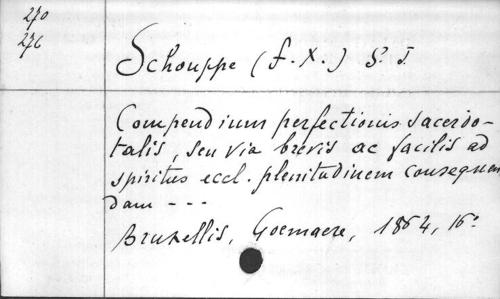 270
276
Schouppe (f. X.) S. J.
Compendium perfectionis sacerdo-
talis, seu via brevis ac facilis ad
spiritus eccl. plenitudinem consequen
dam - - -
Bruxellis, Goemaere, 1864, 16º